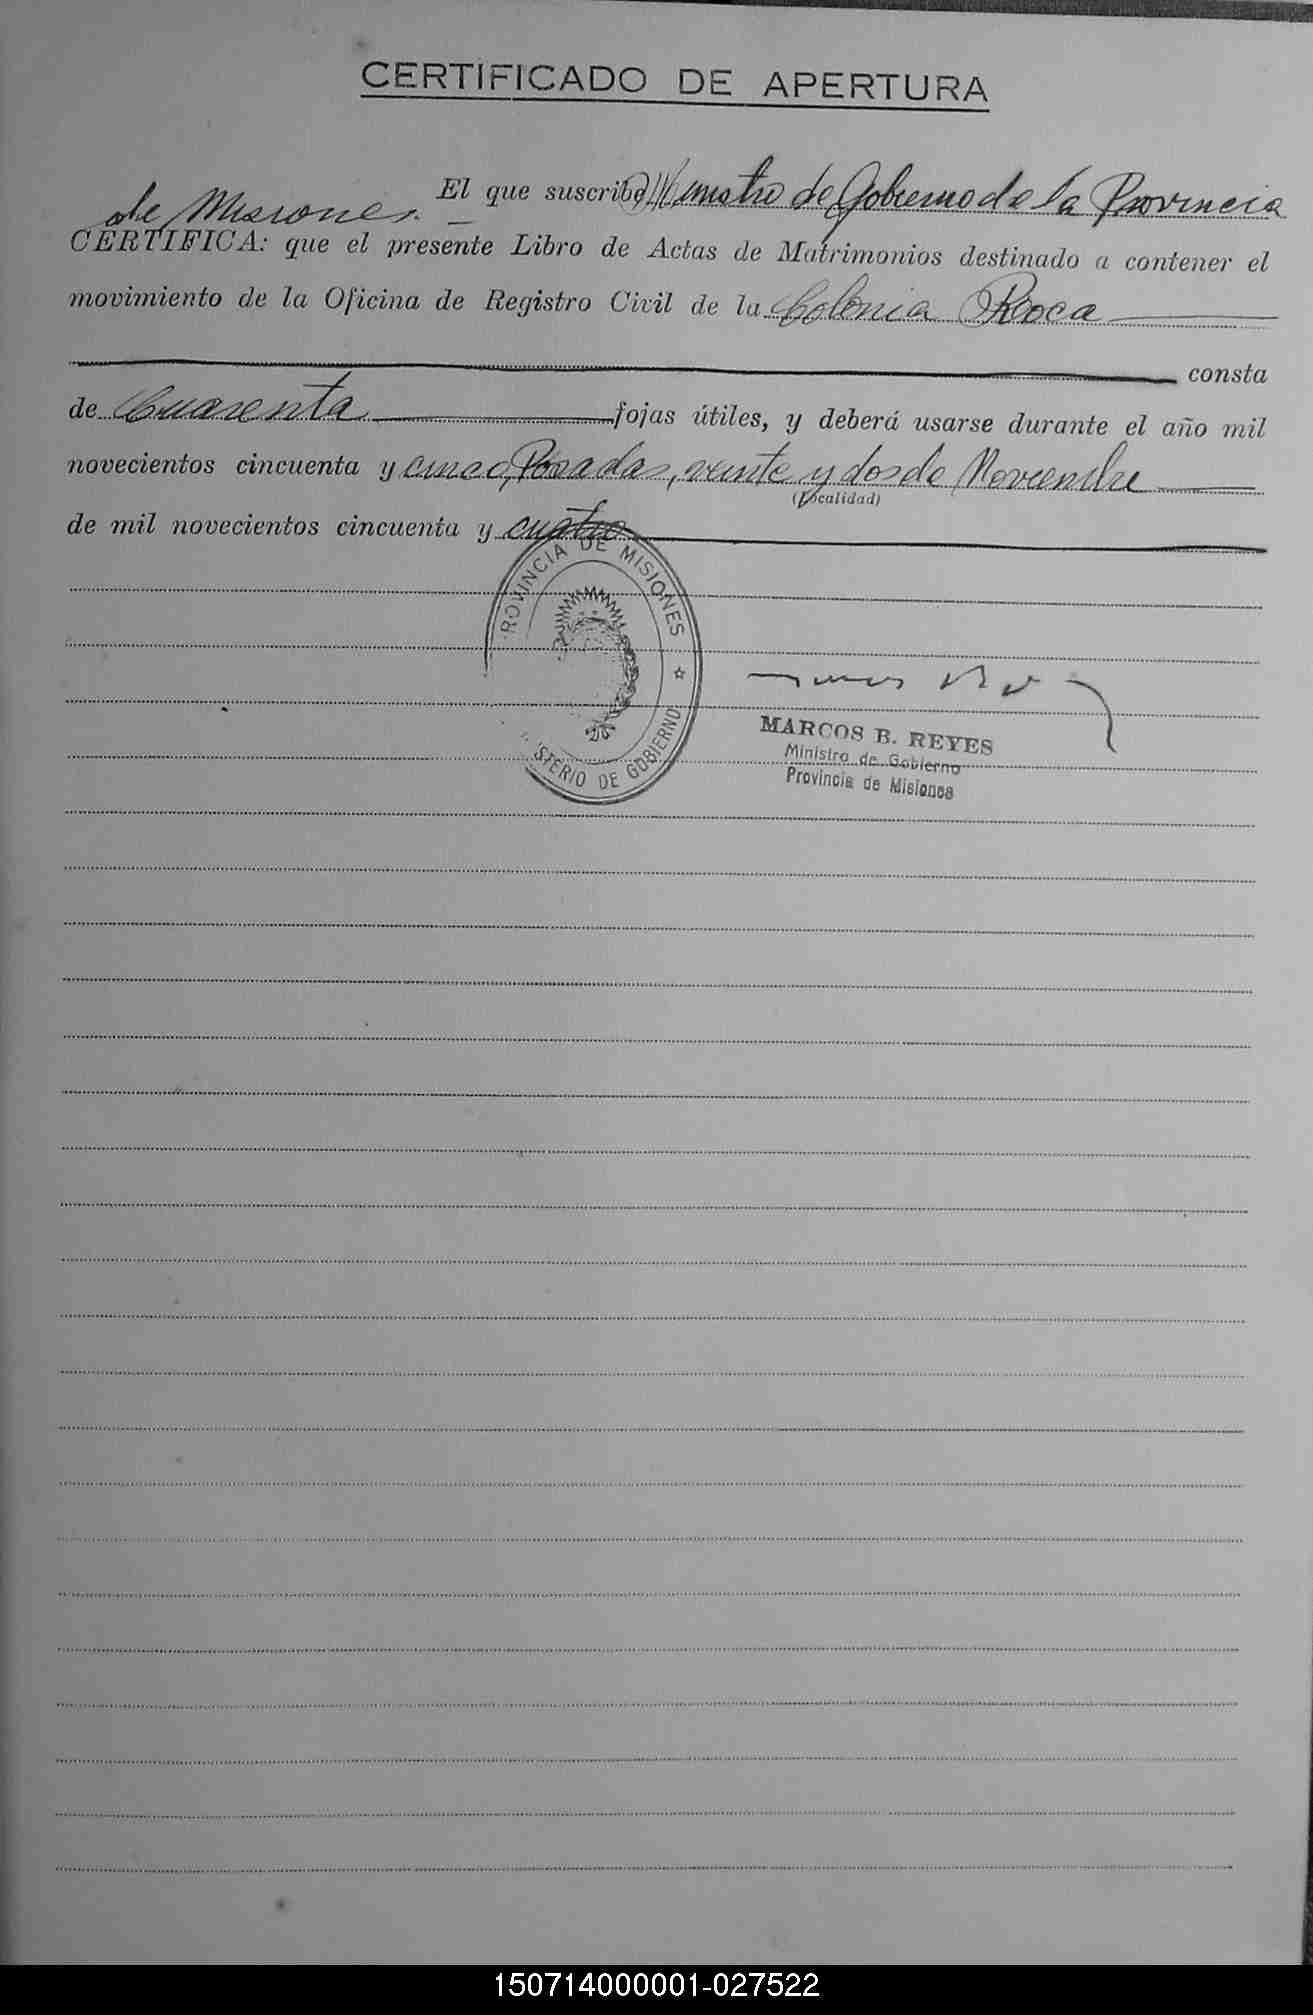 CERTIFICADO DE APERTURA
El que suscribe, Ministro de Gobierno de la Provincia
de Misiones. —
CERTIFICA: que el presente Libro de Actas de Matrimonios destinado a contener el
movimiento de la Oficina de Registro Civil de la Colonia Roca
consta
de Cuarenta fojas útiles, y deberá usarse durante el año mil
novecientos cincuenta y cinco, Posadas, veinte y dos de Noviembre
(Localidad)
de mil novecientos cincuenta y cuatro
PROVINCIA DE MISIONES
STERIO DE GOBIERNO
MARCOS B. REYES
Ministro de Gobierno
Provincia de Misiones
150714000001-027522